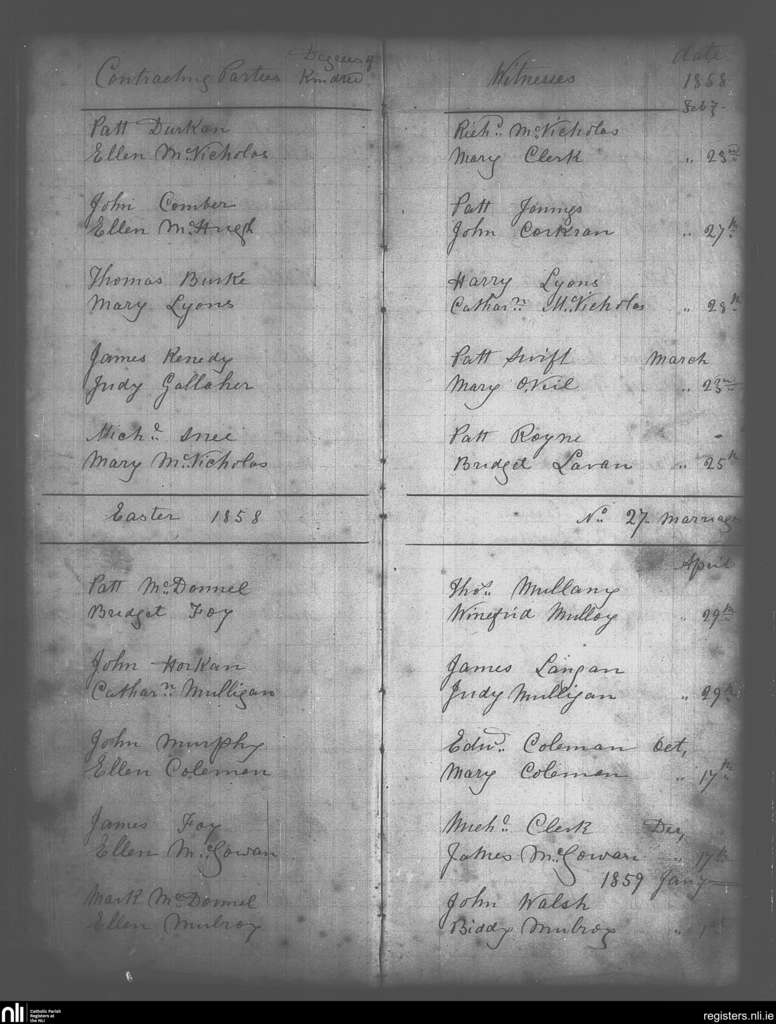 Contracting Parties Degrees of Kindred Witnesses date 1858
Feby.
Patt Durkan Richd. McNicholas
Ellen McNicholas Mary Clerk " 23rd
John Comber Patt Jenings
Ellen McHugh John Corkran " 27th
Thomas Burke Harry Lyons
Mary Lyons Catharne McNicholas " 28th
James Kenedy Patt Swift March
Judy Gallaher Mary O.Neil " 23rd
Michl. Snee Patt Royne
Mary McNicholas Bridget Lavan " 25th
Easter 1858 No. 27 marriag
April
Patt McDonnel Thos. Mullany
Bridget Foy Winefrid Mulloy " 29th
John Horkan James Langan
Catharne Mulligan Judy Mulligan " 29th
John Murphy Edwd. Coleman Oct,
Ellen Coleman Mary Coleman " 17th
James Foy Michl. Clerk Dec,
Ellen McGowan James McGowan " 17th
1859 Jany
Mark McDonnel John Walsh
Ellen Mulroy Biddy Mulroy "
nli
Catholic Parish
Registers at
the NLI
registers.nli.ie